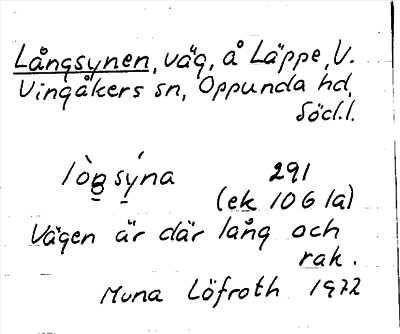 Långsynen, väg, å Läppe, V.
Vingåkers sn, Oppunda hd,
Södl.
lòŋsýna 291
(ek 10 G 1a)
Vägen är där lång och
rak.
Muna Löfroth 1972